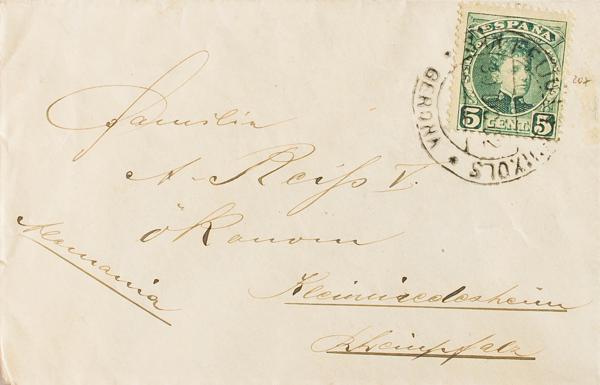 ESPAÑA
5 CENT. 5
GERONA
Familia
A. Reiß V.
ökonom
Kleinniedesheim
Rheinpfalz
Alemania